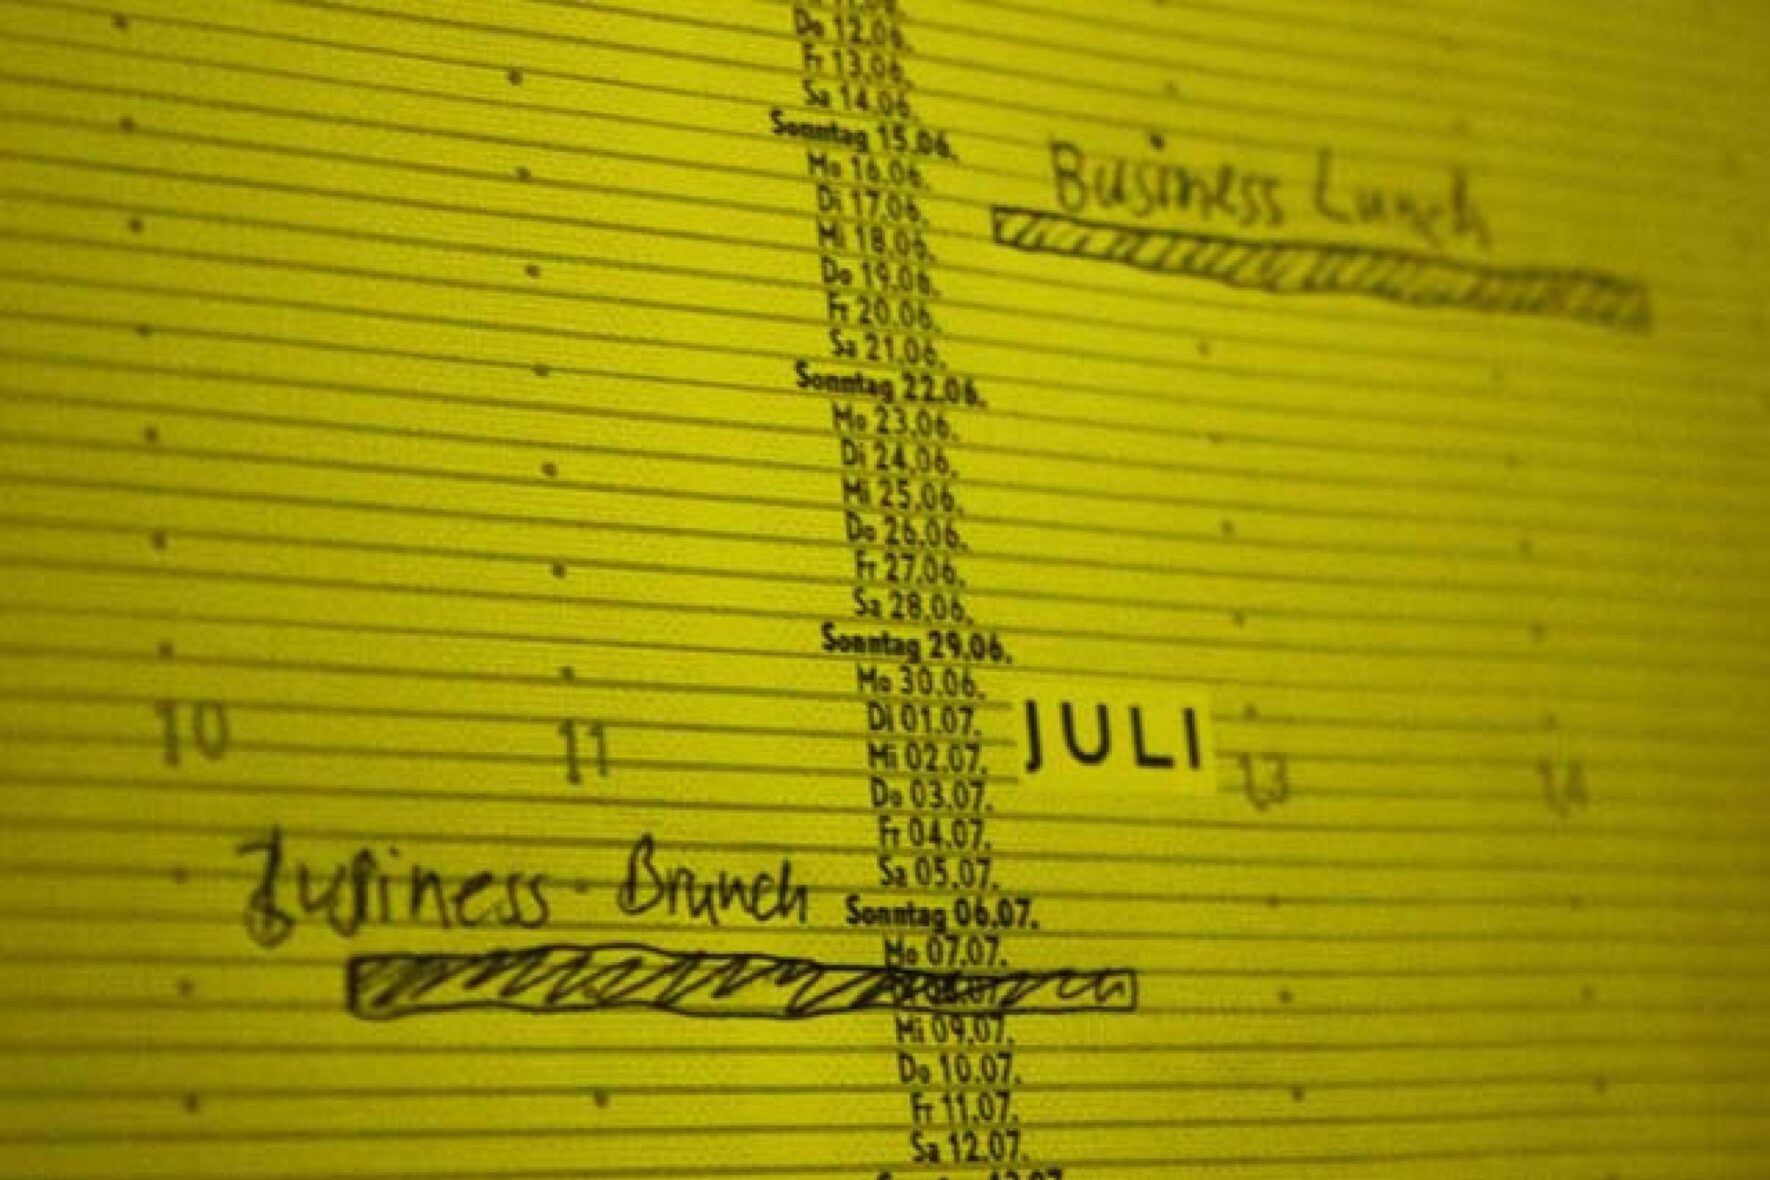 Do 12.06.
Fr 13.06.
Sa 14.06.
Sonntag 15.06.
Mo 16.06.
Business Lunch
Di 17.06.
Mi 18.06.
Do 19.06.
Fr 20.06.
Sa 21.06.
Sonntag 22.06.
Mo 23.06.
Di 24.06.
Mi 25.06.
Do 26.06.
Fr 27.06.
Sa 28.06.
Sonntag 29.06.
Mo 30.06.
Di 01.07.
10 11 Mi 02.07. JULI 13 14
Do 03.07.
Fr 04.07.
Sa 05.07.
Business-Brunch
Sonntag 06.07.
Mo 07.07.
Mi 09.07.
Do 10.07.
Fr 11.07.
Sa 12.07.